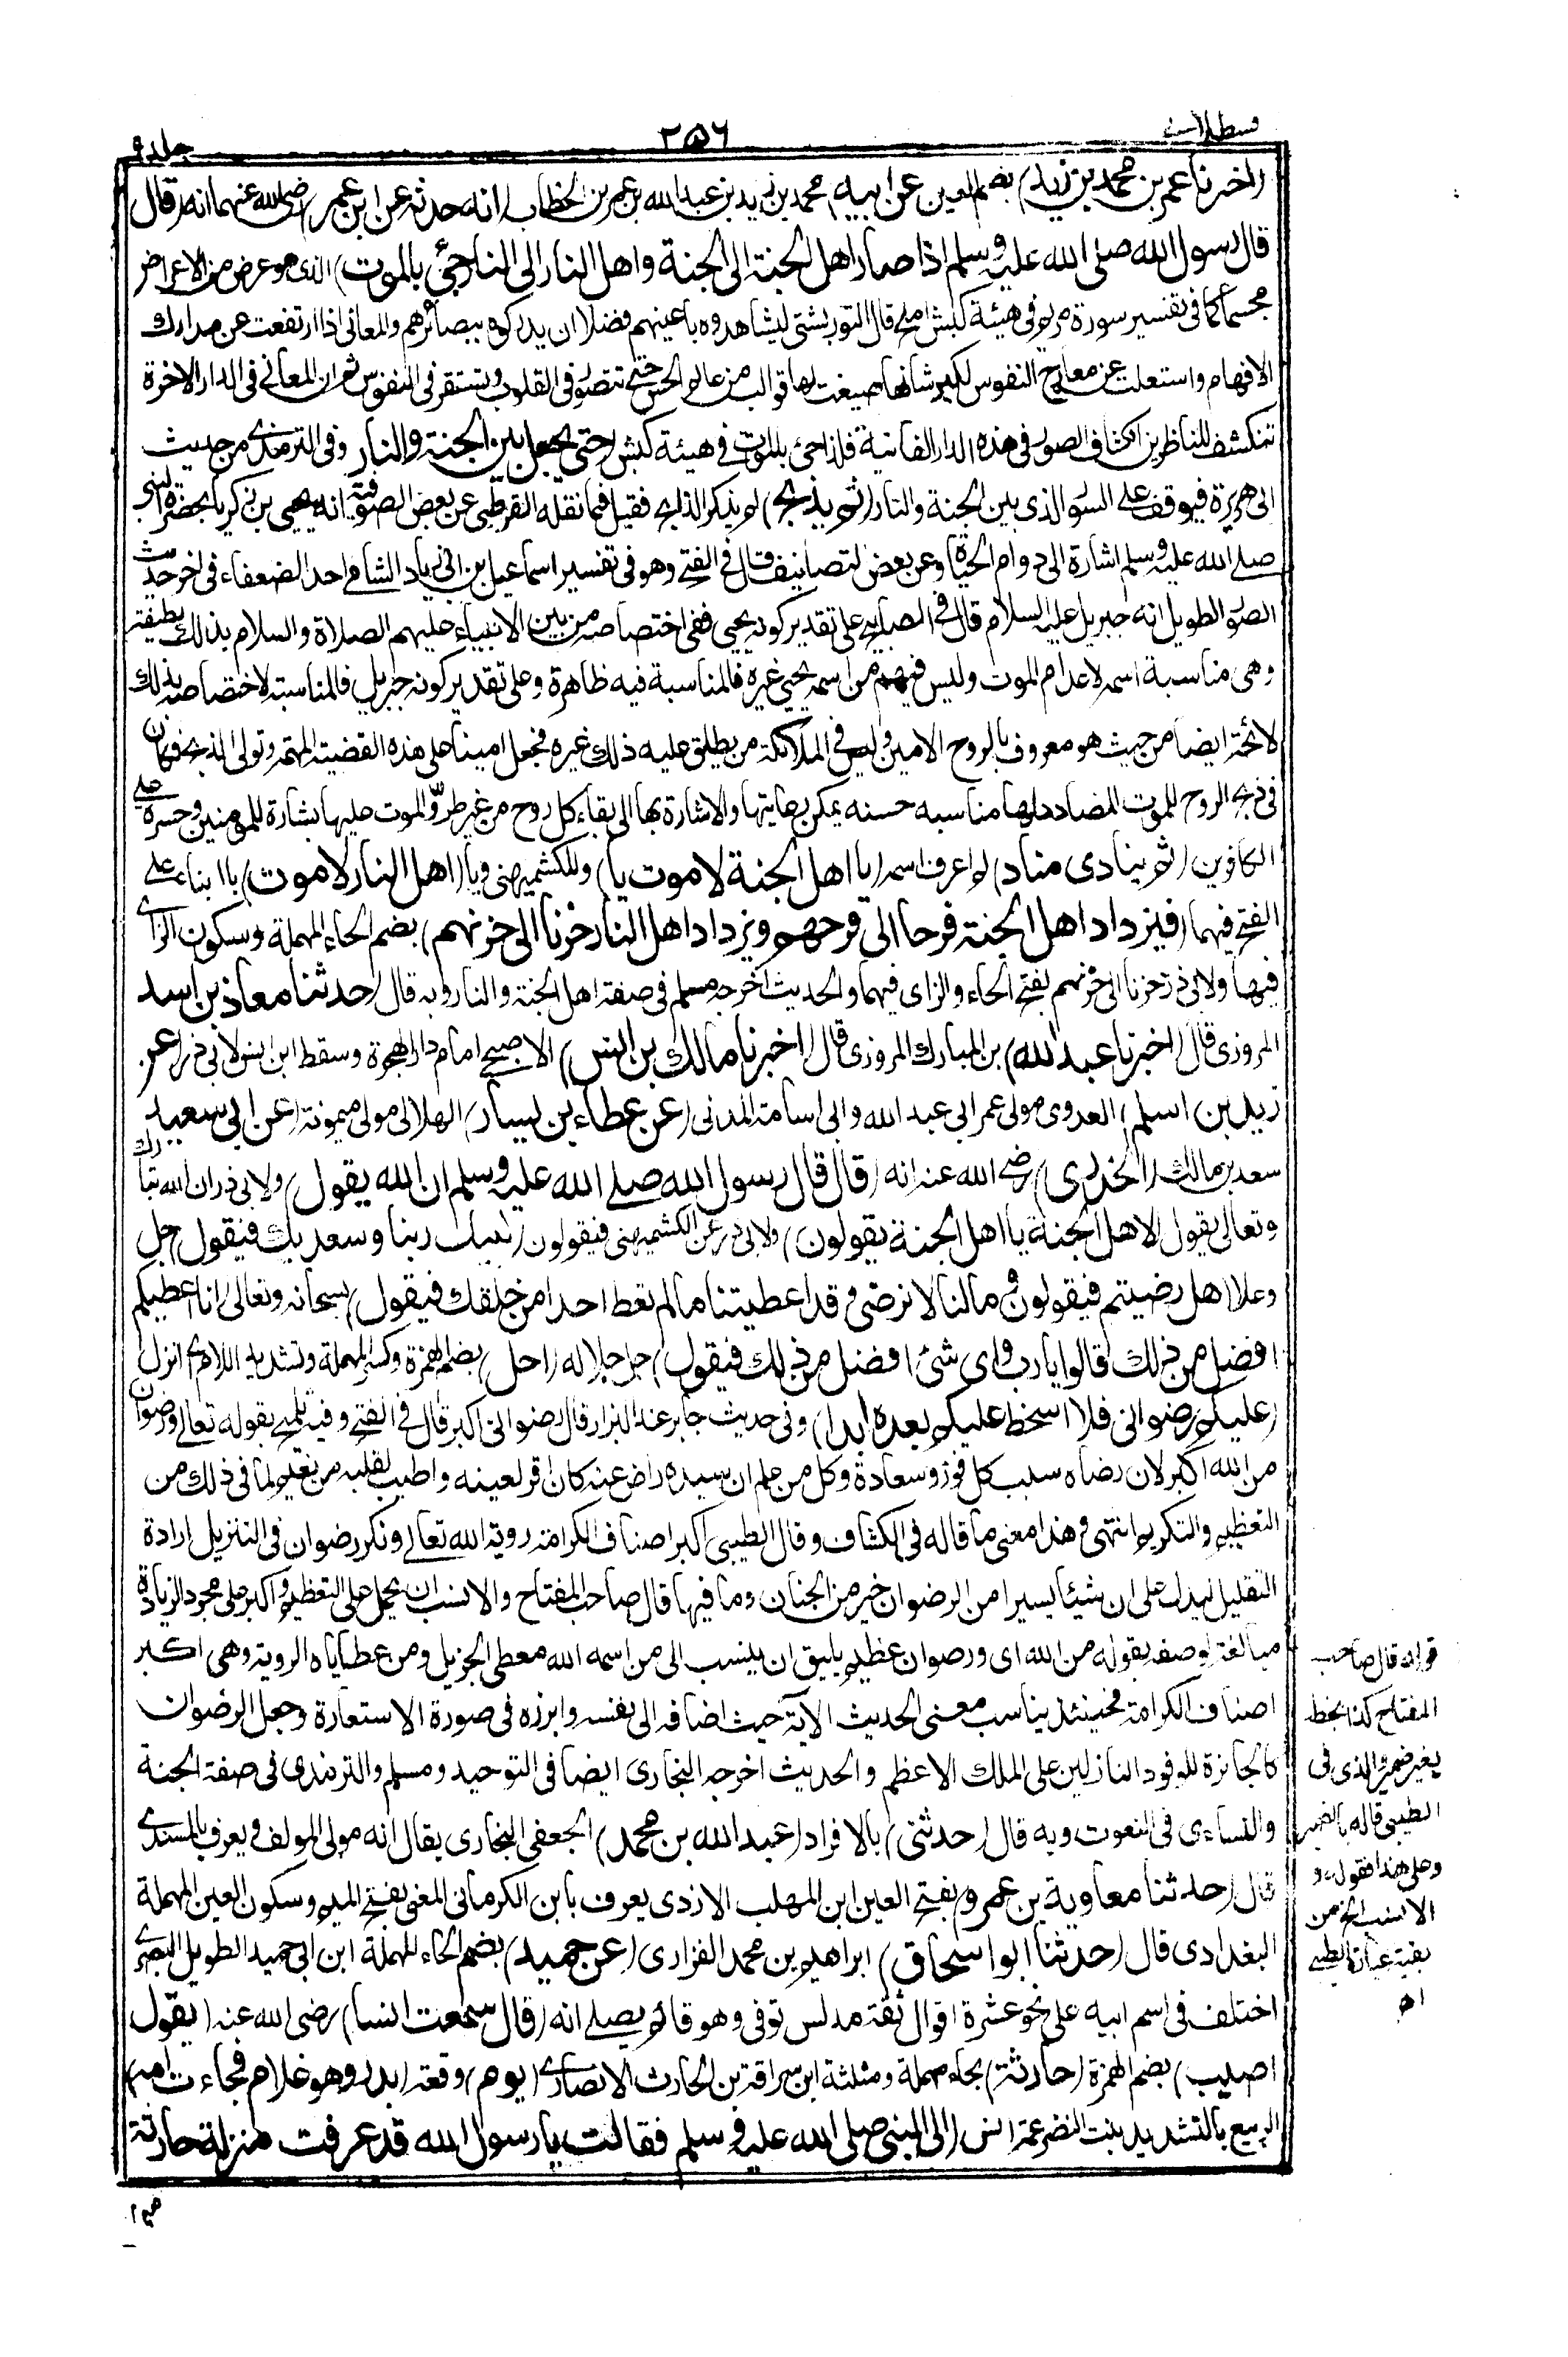 قسطلانى
٢٥٦
جلد ٩
(اخبرنا عمر بن محمد بن زيد) بضم العين (عن ابيه) محمد بن زيد بن عبد الله بن عمر بن الخطاب (انه حدثه عن ابن عمر) رضى الله عنهما انه (قال
قال رسول الله صلى الله عليه وسلم اذا صار اهل الجنة الى الجنة واهل النار الى النار جئ بالموت) الذى هو عرض من الاعراض
مجسما كما فى تفسير سورة مريم فى هيئة كبش املح قال التوربشتى ليشاهدوه باعينهم فضلا ان يدركوه ببصائرهم والمعانى اذا ارتفعت عن مدارك
الافهام واستعلت عن معارج النفوس لكبر شانها صيغت لها قوالب من عالم الحس حتى تتصور فى القلوب وتستقر فى النفوس ثم ان المعانى فى الدار الاخرة
تنكشف للناظرين انكشاف الصور فى هذه الدار الفانية فلذا جئ بالموت فى هيئة كبش (حتى يجعل بين الجنة والنار) وفى الترمذى من حديث
ابى هريرة فيوقف على السور الذى بين الجنة والنار (ثم يذبح) لم يذكر الذابح فقيل فيما نقله القرطبى عن بعض الصوفية انه يحيى بن زكريا بحضرة النبى
صلى الله عليه وسلم اشارة الى دوام الحياة وعن بعض التصانيف قال فى الفتح وهو فى تفسير اسماعيل بن ابى زياد الشامى احد الضعفاء فى اخر حديث
الصور الطويل انه جبريل عليه السلام قال فى المصابيح على تقدير كونه يحيى ففى اختصاصه من بين الانبياء عليهم الصلاة والسلام بذلك لطيفة
وهى مناسبة اسمه لاعدام الموت وليس فيهم من اسمه يحيى غيره فالمناسبة فيه ظاهرة وعلى تقدير كونه جبريل فالمناسبة لاختصاصه بذلك
لائحة ايضا من حيث هو معروف بالروح الامين وليس فى الملائكة من يطلق عليه ذلك غيره فجعل امينا على هذه القضية المهمة وتولى الذبح فكان
فى ذبح الروح للموت المضاد لها مناسبه حسنه يمكن رعايتها والاشارة بها الى بقاء كل روح من غير طرو الموت عليها بشارة للمومنين وحسرة على
الكافرين (ثم ينادى مناد) لم اعرف اسمه (يا اهل الجنة لا موت يا) وللكشميهنى ويا (اهل النار لا موت) بالبناء على
الفتح فيهما (فيزداد اهل الجنة فرحا الى فرحهم ويزداد اهل النار حزنا الى حزنهم) بضم الحاء المهملة وسكون الزاى
فيهما ولابى ذر حزنا الى حزنهم بفتح الحاء والزاى فيهما والحديث اخرجه مسلم فى صفة اهل الجنة والنار وبه قال (حدثنا معاذ بن اسد
المروزى قال (اخبرنا عبد الله) بن المبارك المروزى قال (اخبرنا مالك بن انس) الاصبحى امام دار الهجرة وسقط ابن انس لابى ذر (عن
زيد بن اسلم) العدوى مولى عمر ابى عبد الله وابى اسامة المدنى (عن عطاء بن يسار) الهلالى مولى ميمونة (عن ابى سعيد
سعد بن مالك (الخدرى) رضى الله عنه انه (قال قال رسول الله صلى الله عليه وسلم ان الله يقول) ولابى ذر ان الله تبارك
وتعالى يقول (لاهل الجنة يا اهل الجنة يقولون) ولابى ذر عن الكشميهنى فيقولون (لبيك ربنا وسعديك فيقول) جل
وعلا (هل رضيتم فيقولون وما لنا لا نرضى وقد اعطيتنا ما لم تعط احدا من خلقك فيقول) سبحانه وتعالى (انا اعطيكم
افضل من ذلك قالوا يا رب واى شئ افضل من ذلك فيقول) جل جلاله (احل) بضم الهمزة وكسر المهملة وتشديد اللام اى انزل
(عليكم رضوانى فلا اسخط عليكم بعده ابدا) وفى حديث جابر عند البزار قال رضوانى اكبر قال فى الفتح وفيه تلميح بقوله تعالى ورضوان
من الله اكبر لان رضاه سبب كل فوز وسعادة وكل من علم ان سيده راض عنه كان اقر لعينه واطيب لقلبه من نعيم لما فى ذلك من
التعظيم والتكريم انتهى وهذا معنى ما قاله فى الكشاف وقال الطيبى اكبر اصناف الكرامة روية الله تعالى ونكر رضوان فى التنزيل ارادة
التقليل ليدل على ان شيئا يسيرا من الرضوان خير من الجنان وما فيها قال صاحب المفتاح والانسب ان يحمل على التعظيم واكبر على مجرد الزيادة
مبالغة لوصفه بقوله من الله اى ورضوان عظيم يليق ان ينسب الى من اسمه الله معطى الجزيل ومن عطاياه الروية وهى اكبر
اصناف الكرامة فحينئذ يناسب معنى الحديث الآية حيث اضافه الى نفسه وابرزه فى صورة الاستعارة وجعل الرضوان
كالجائزة للوفود النازلين على الملك الاعظم والحديث اخرجه البخارى ايضا فى التوحيد ومسلم والترمذى فى صفة الجنة
والنساءى فى النعوت وبه قال (حدثنى) بالافراد (عبد الله بن محمد) الجعفى البخارى يقال انه مولى المولف ويعرف بالمسندى
قال (حدثنا معاوية بن عمرو) بفتح العين ابن المهلب الازدى يعرف بابن الكرمانى المغنى بفتح الميم وسكون العين المهملة
البغدادى قال (حدثنا ابو اسحاق) ابراهيم بن محمد الفزارى (عن حميد) بضم الحاء المهملة ابن ابى حميد الطويل البصرى
اختلف فى اسم ابيه على نحو عشرة اقوال ثقة مدلس توفى وهو قائم يصلى انه (قال سمعت انسا) رضى الله عنه (يقول
اصيب) بضم الهمزة (حارثة) بحاء مهملة ومثلثة ابن سراقة بن الحارث الانصارى (يوم) وقعة (بدر وهو غلام فجاءت امه)
الربيع بالتشديد بنت النضر عمة انس (الى النبى صلى الله عليه وسلم فقالت يا رسول الله قد عرفت منزلة حارثة
قوله قال صاحب
المفتاح كذا بخطه
بغير ضمير والذى فى
الطيبى قاله بالضمير
وعلى هذا فقوله و
الانسب الخ من
بقية عبارة الطيبى
اهـ